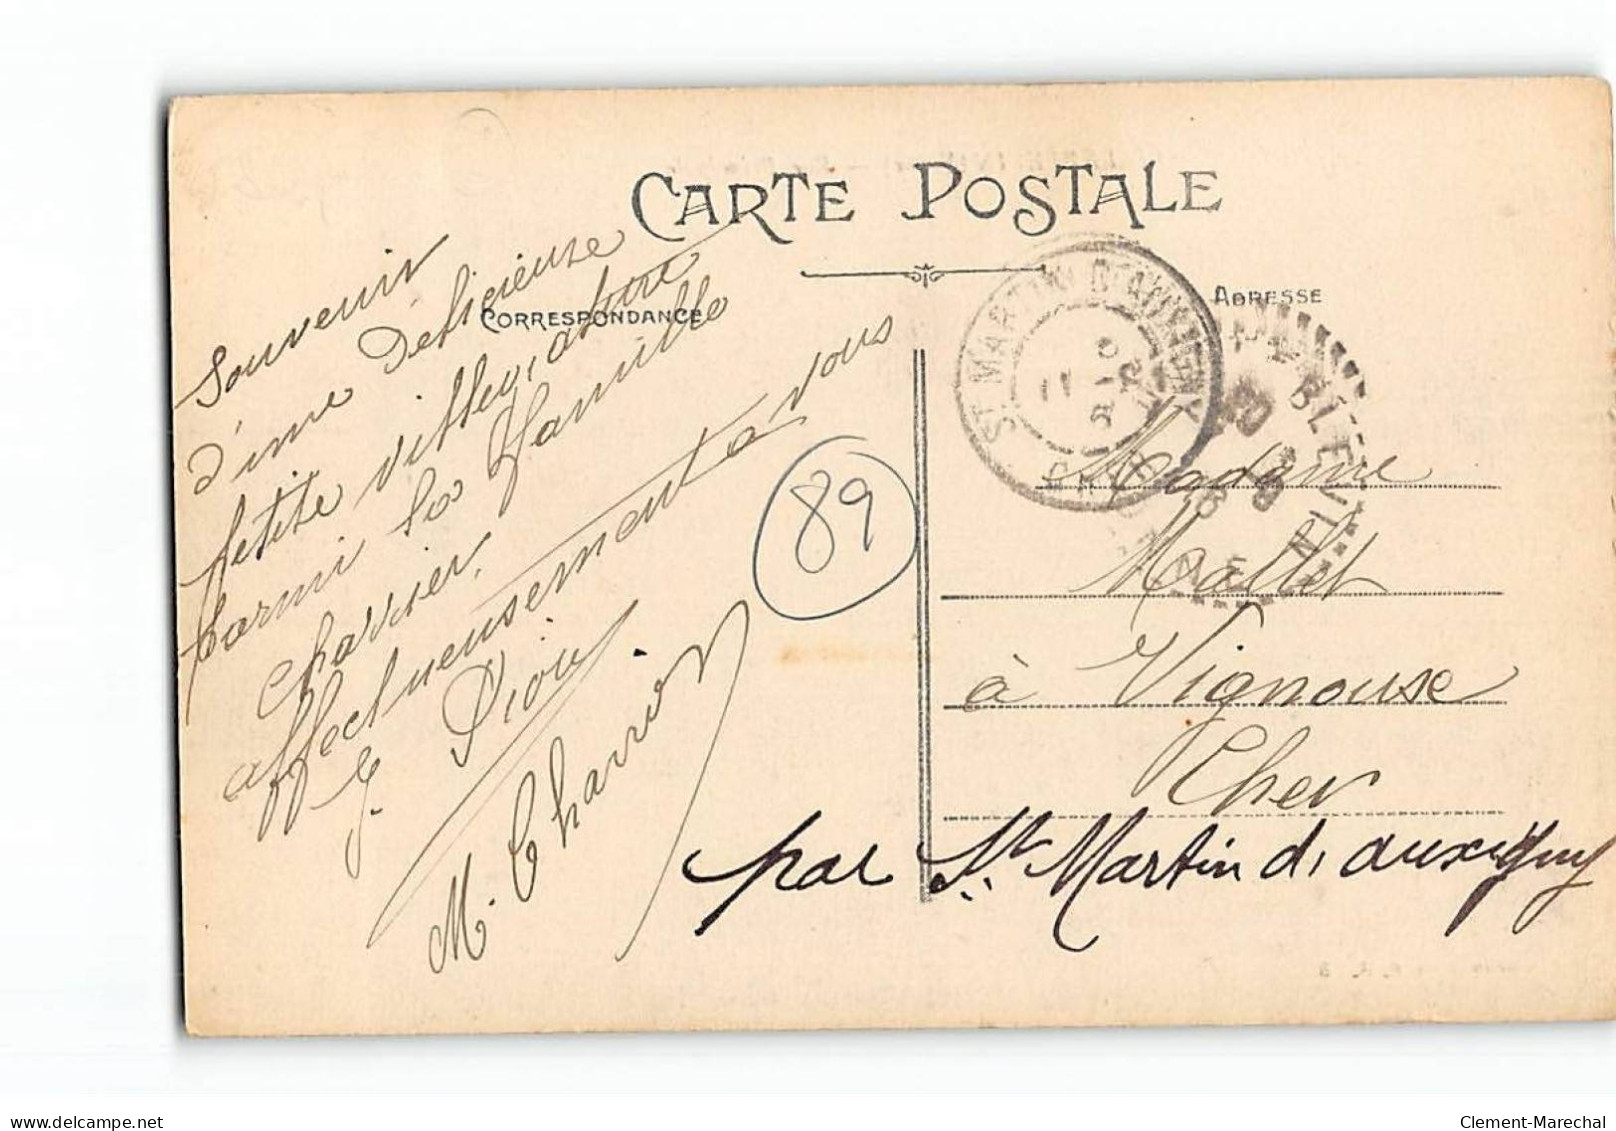 CARTE POSTALE
CORRESPONDANCE
ADRESSE
Souvenir
d'une délicieuse
petite villégiature
parmi la famille
Charrier.
affectueusement à vous
M. Charrier
89
ST MARTIN D'AUXIGNY
CHER
BLEVIN
Madame
Mallet
à Vignouse
Cher
par St Martin d'auxigny
delcampe.net
Clement-Marechal